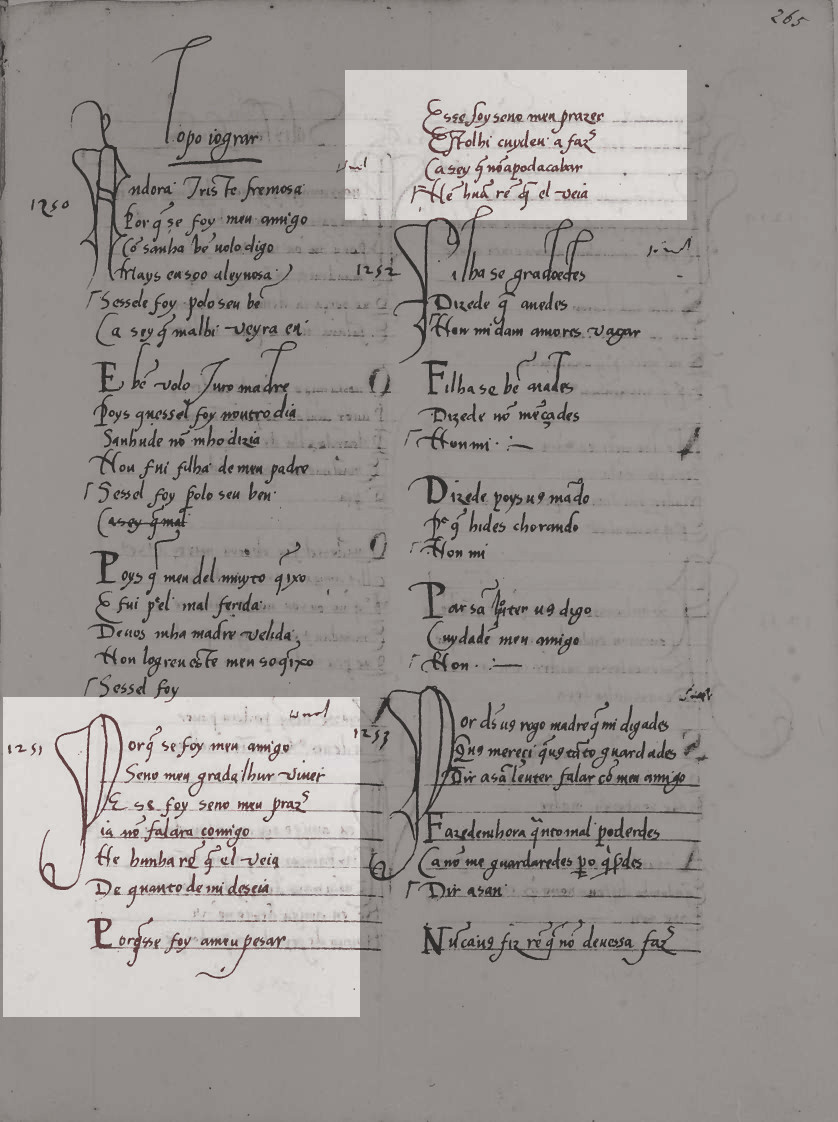 265
Lopo iograr
1250
Andora Triste fremosa
Porq̄ se foy meu amigo
Cō sanha bē uolo digo
Mays en soo aleyuosa
Sessele foy polo seu bē
Ca sey q̄ mal lhi veyra en
E bē volo Juro madre
Poys quessel foy noutro dia
Sanhude nō mho dizia
Nou fui filha de meu padre
Sessel foy polo seu ben
Ca sey q̄ mal
Poys q̄ meu del muyto q̄ixo
E fui pᵉel mal ferida
De uos mha madre velida
Non logreu este meu soq̄ixo
Sessel foy
1251
Porq̄ se foy meu amigo
Seno meu gradalhur viuer
E se foy seno meu praz̄
ia nō falara comigo
Ne hunha rē q̄ el veia
De quanto de mi deseia
Porq̄sse foy ameu pesar
Esse foy seno meu prazer
E tolhi cuydeu a faz̄
Ca sey q̄ nō apodacabar
Ne huā rē q̄ el veia
1252
Filha se gradoedes
Dizede q̄ auedes
Non mi dam amores vagar
Filha se bē aiades
Dizede nō mēçades
Non mi
Dizede poys uꝯ mādo
Pᵉ q̄ hides chorando
Non mi
Par sā leuter uꝯ digo
Cuydade meu amigo
Non
1253
Por dš uꝯ rogo madre q̄ mi digades
Que mereçi q̄uꝯ tāto guardades
Dir a sā leuter falar cō meu amigo
Fazedemhora q̄nto mal poderdes
Ca nō me guardaredes pero q̄
Dir a san
Nūcauꝯ fiz rē q̄ nō deuessa faz̄